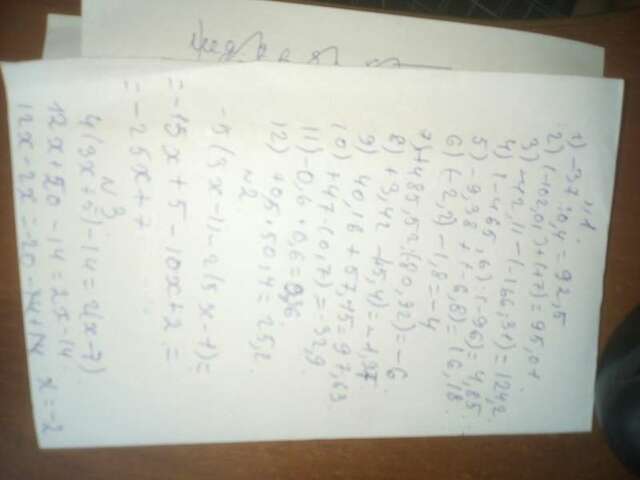 N1.
1) -37 : 0,4 = 92,5
2) (-102,01) + (47) = 95,01
3) -42,11 - (-166,31) = 124,2
4) (-465,6) : (-96) = 4,85
5) -9,38 + (-6,8) = 16,18
6) (-2,2) - 1,8 = -4
7) +485,52 : (80,92) = -6
8) +3,42
9) 40,18 + 57,45 = 97,63
10) +47 · (0,7) = -32,9
11) -0,6 · 0,6 = 0,36
12) +0,5 · 50,4 = 25,2
N2.
-5(3x-1)-2(5x-1)=
=-15x+5-10x+2=
=-25x+7
N3
4(3x+5)-14=2(x-7)
12x+20-14=2x-14
12x-2x=-20-14+14 x=-2